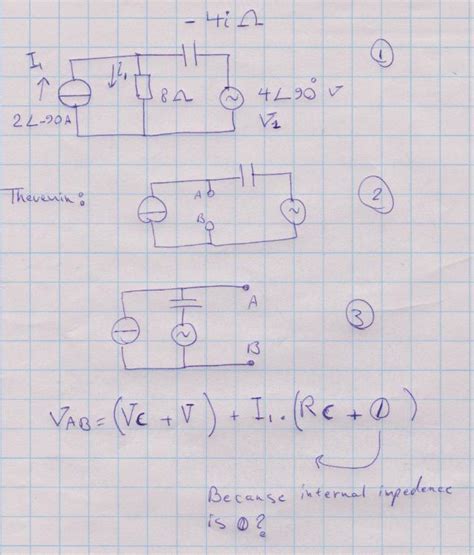 -4i Ω
①
I₁ i₁ 8Ω 4∠90° V
2∠-90A V₁
Thevenin: A B ②
A
③
B
V_AB = (Vc + V) + I₁ · (Rc + 0)
Because internal impedence
is 0?